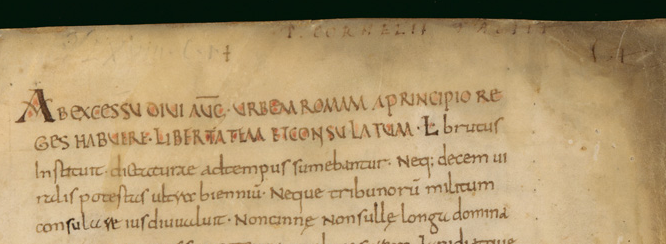 P. CORNELII TACITI
AB EXCESSU DIVI AUG. URBEM ROMAM A PRINCIPIO RE
GES HABUERE. LIBERTATEM ET CONSULATUM. L. brutus
Instituit. dictaturae adtempus sumebantur. Neq; decem ui
ralis potestas ultra bienniū. Neque tribunorū militum
consulare ius diu ualuit. Non cinnę Non sullę longa domina